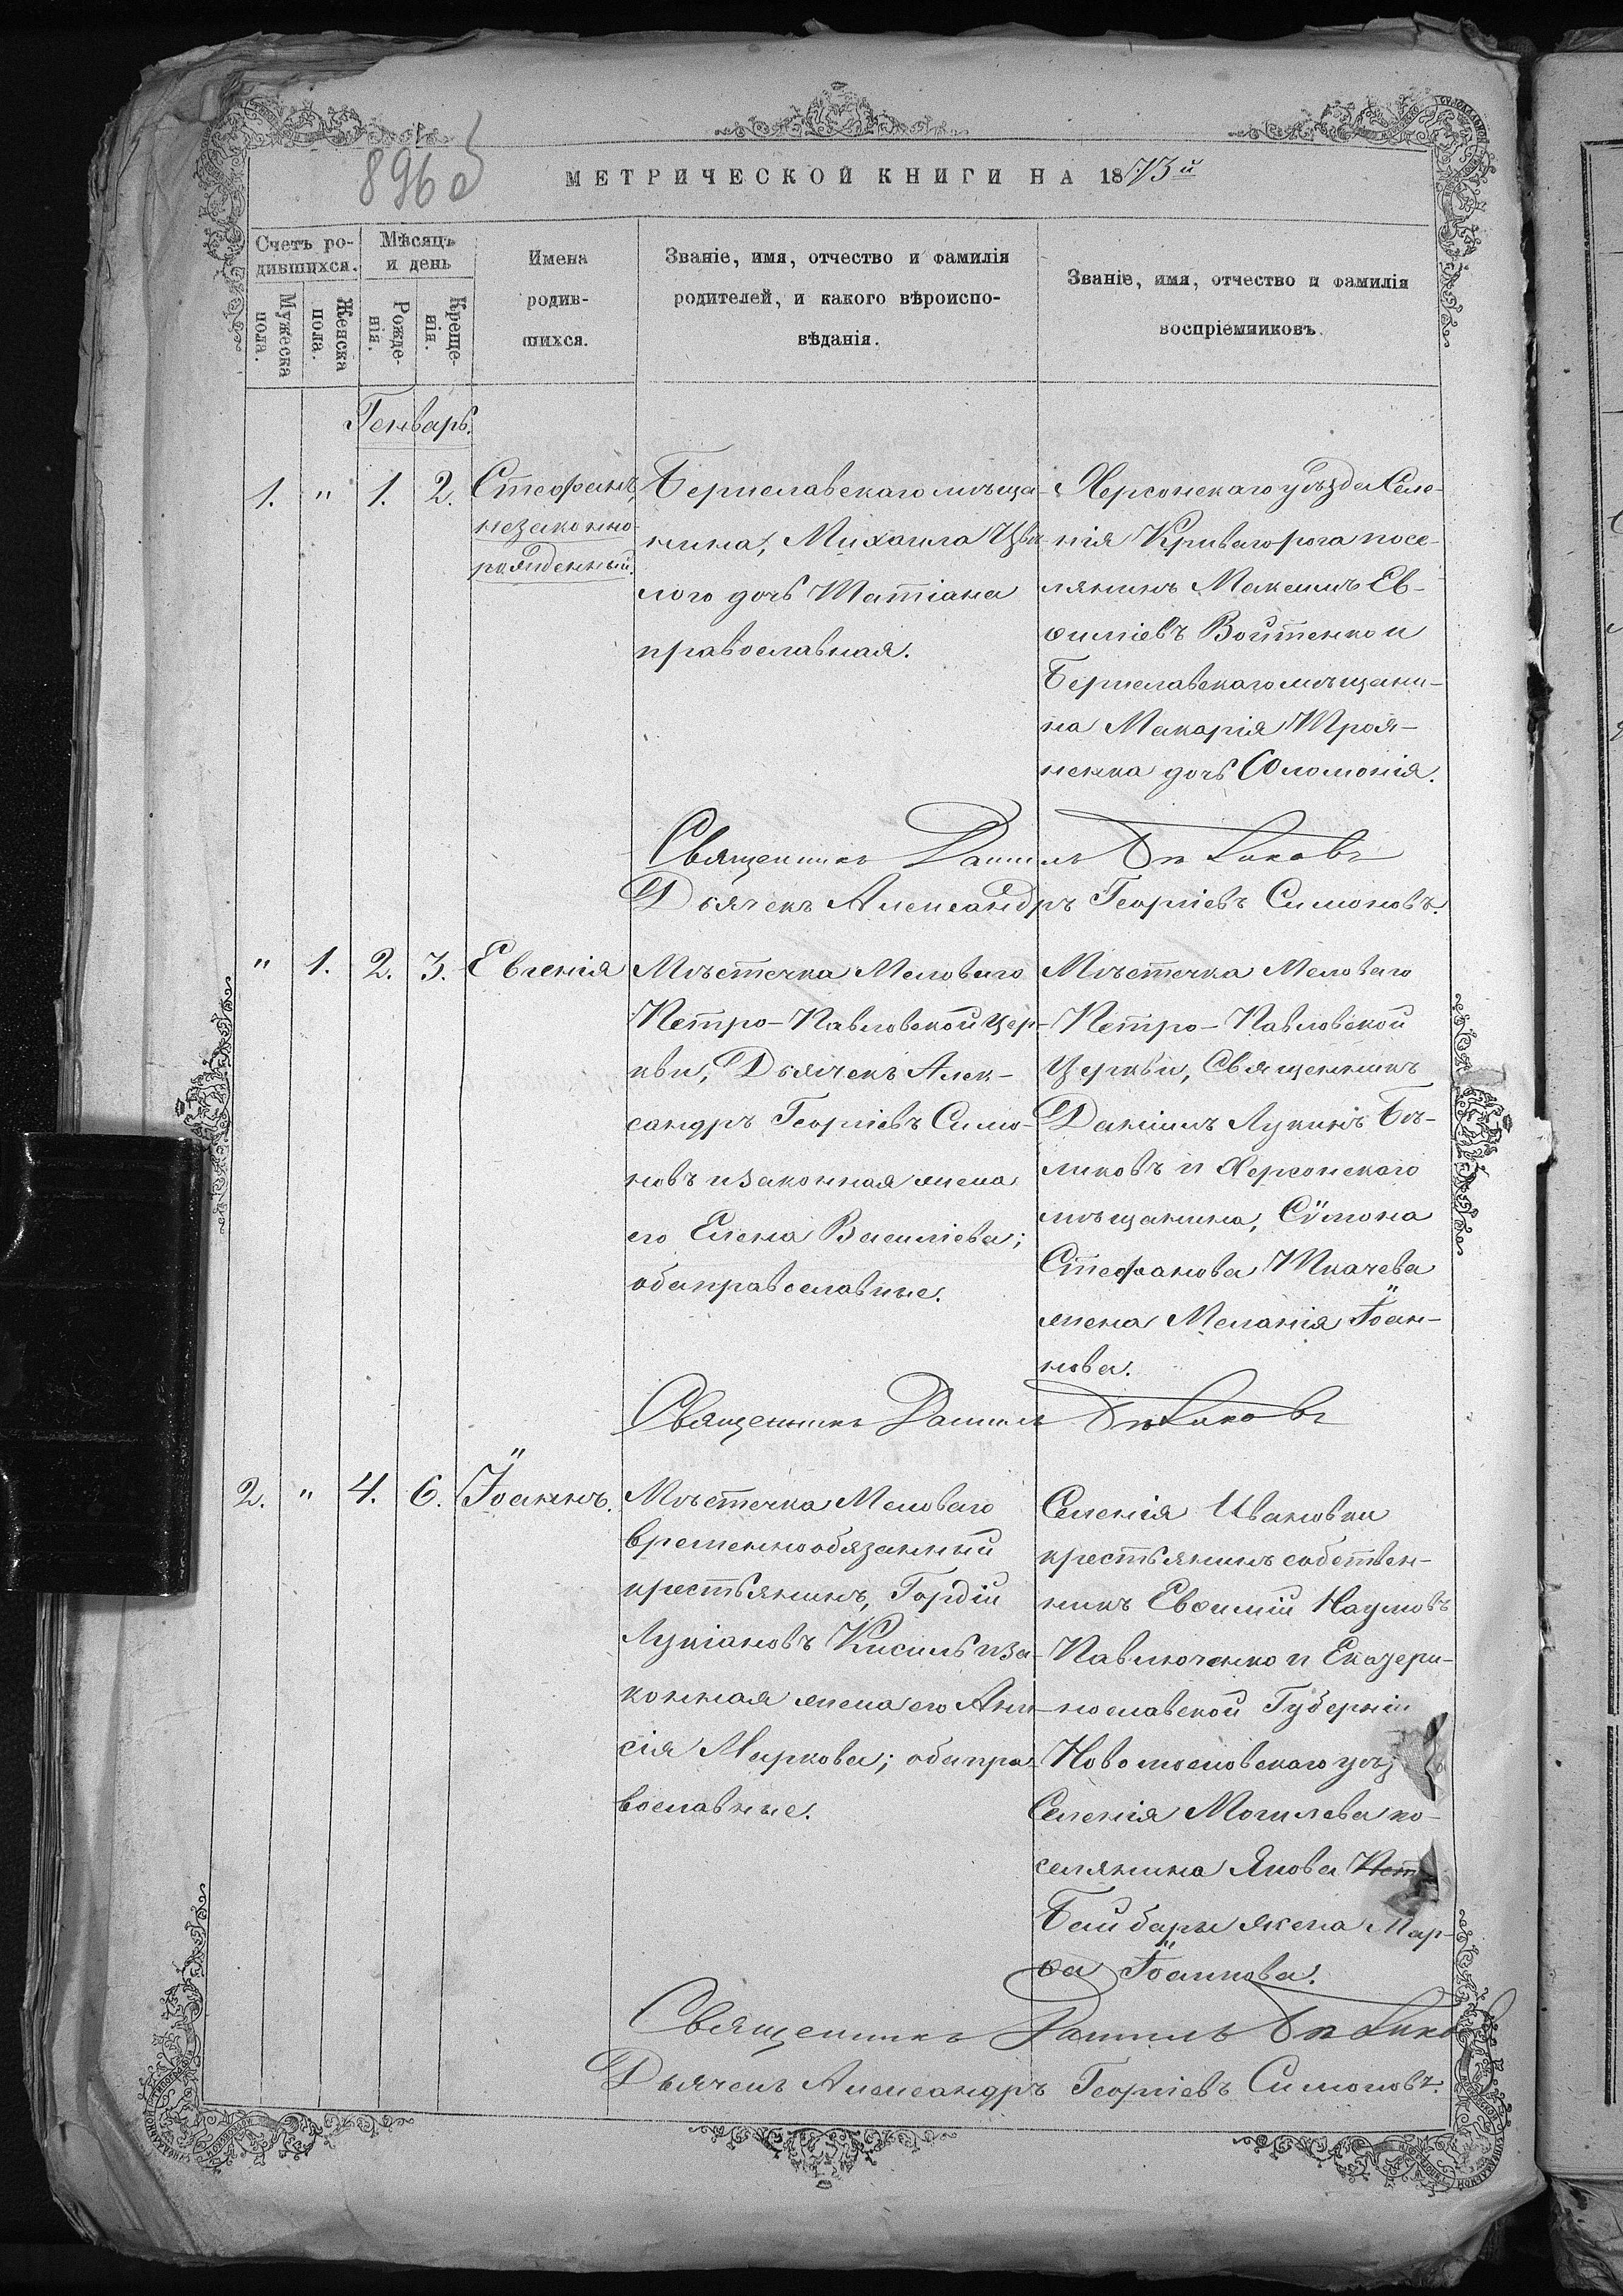 896 об
МЕТРИЧЕСКОЙ КНИГИ НА 1873й
Счетъ ро-
дившихся.
Мужеска
пола.
Женска
пола.
Мѣсяцъ
и день
Рожде-
нія.
Креще-
нія.
Имена
родив-
шихся.
Званіе, имя, отчество и фамилія
родителей, и какого вѣроиспо-
вѣданія.
Званіе, имя, отчество и фамилія
воспріемниковъ.
Генварь.
1. " 1. 2.
Стефанъ,
незаконно-
рожденный.
Бериславскаго мѣща-
нина, Михаила
лого дочь Татіана
православная.
Херсонскаго уѣзда Селе-
нія Криваго рога посе-
лянинъ Максимъ Ев-
ѳиміевъ Войтенко и
Бериславскаго мѣщани-
на Макарія Троя-
ненка дочь Соломонія.
Священникъ Даніилъ Бѣликовъ
Дьячекъ Александръ Георгіевъ Симоновъ.
" 1. 2. 3.
Евгенія
Мѣстечка Меловаго
Петро-Павловской Цер-
кви, Дьячекъ Алек-
сандръ Георгіевъ Симо-
новъ и законная жена
его Елена Василіева;
оба православные.
Мѣстечка Меловаго
Петро-Павловской
Церкви, Священникъ
Даніилъ Лукинъ Бѣ-
ликовъ и Херсонскаго
мѣщанина, Сѵмона
Стефанова Ткачева
жена Меланія Іоан-
нова.
Священникъ Даніилъ Бѣликовъ
2. " 4. 6.
Іоаннъ.
Мѣстечка Меловаго
временнообязанный
крестьянинъ, Гордій
Лукіановъ Кисиль и за-
конная жена его Ани-
сія Маркова; оба пра-
вославные.
Селенія Ивановки
крестьянинъ собствен-
никъ Евѳимій Наумовъ
Павлюченко и Екатери-
нославской Губерніи
Новомосковскаго уѣз
Селенія Могилева по-
селянина Якова
Байбары жена Мар-
ѳа Іоаннова.
Священникъ Даніилъ Бѣликовъ
Дьячекъ Александръ Георгіевъ Симоновъ.